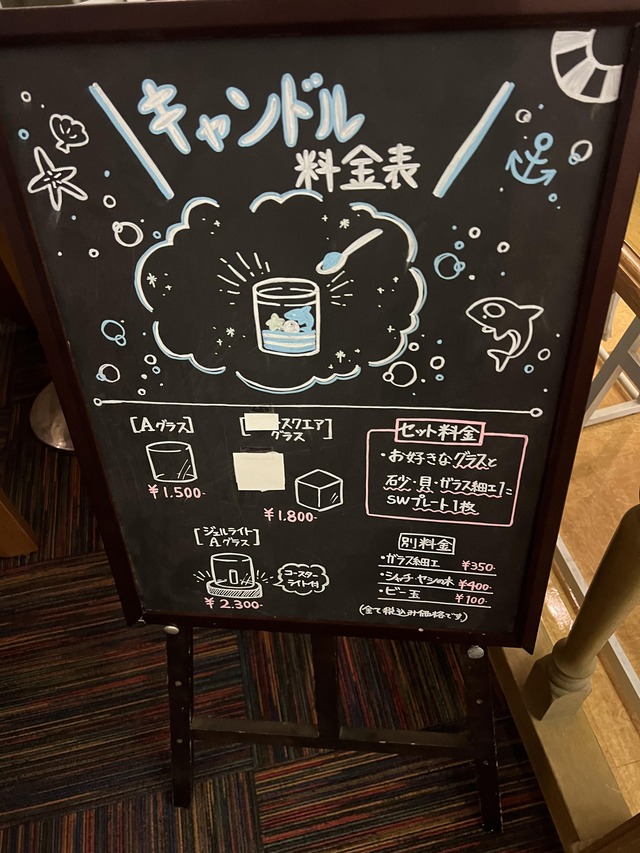 キャンドル
料金表
[Aグラス]
¥1.500-
[スクエア
グラス]
¥1.800-
[ジェルライト
Aグラス]
コースター
ライト付
¥2.300-
セット料金
・お好きなグラスと
石少・貝・ガラス細工1こ
SWプレート1枚
別料金
・ガラス細工 ¥350-
・シャチ・ヤシの木 ¥400-
・ビー玉 ¥100-
(全て税込み価格です)